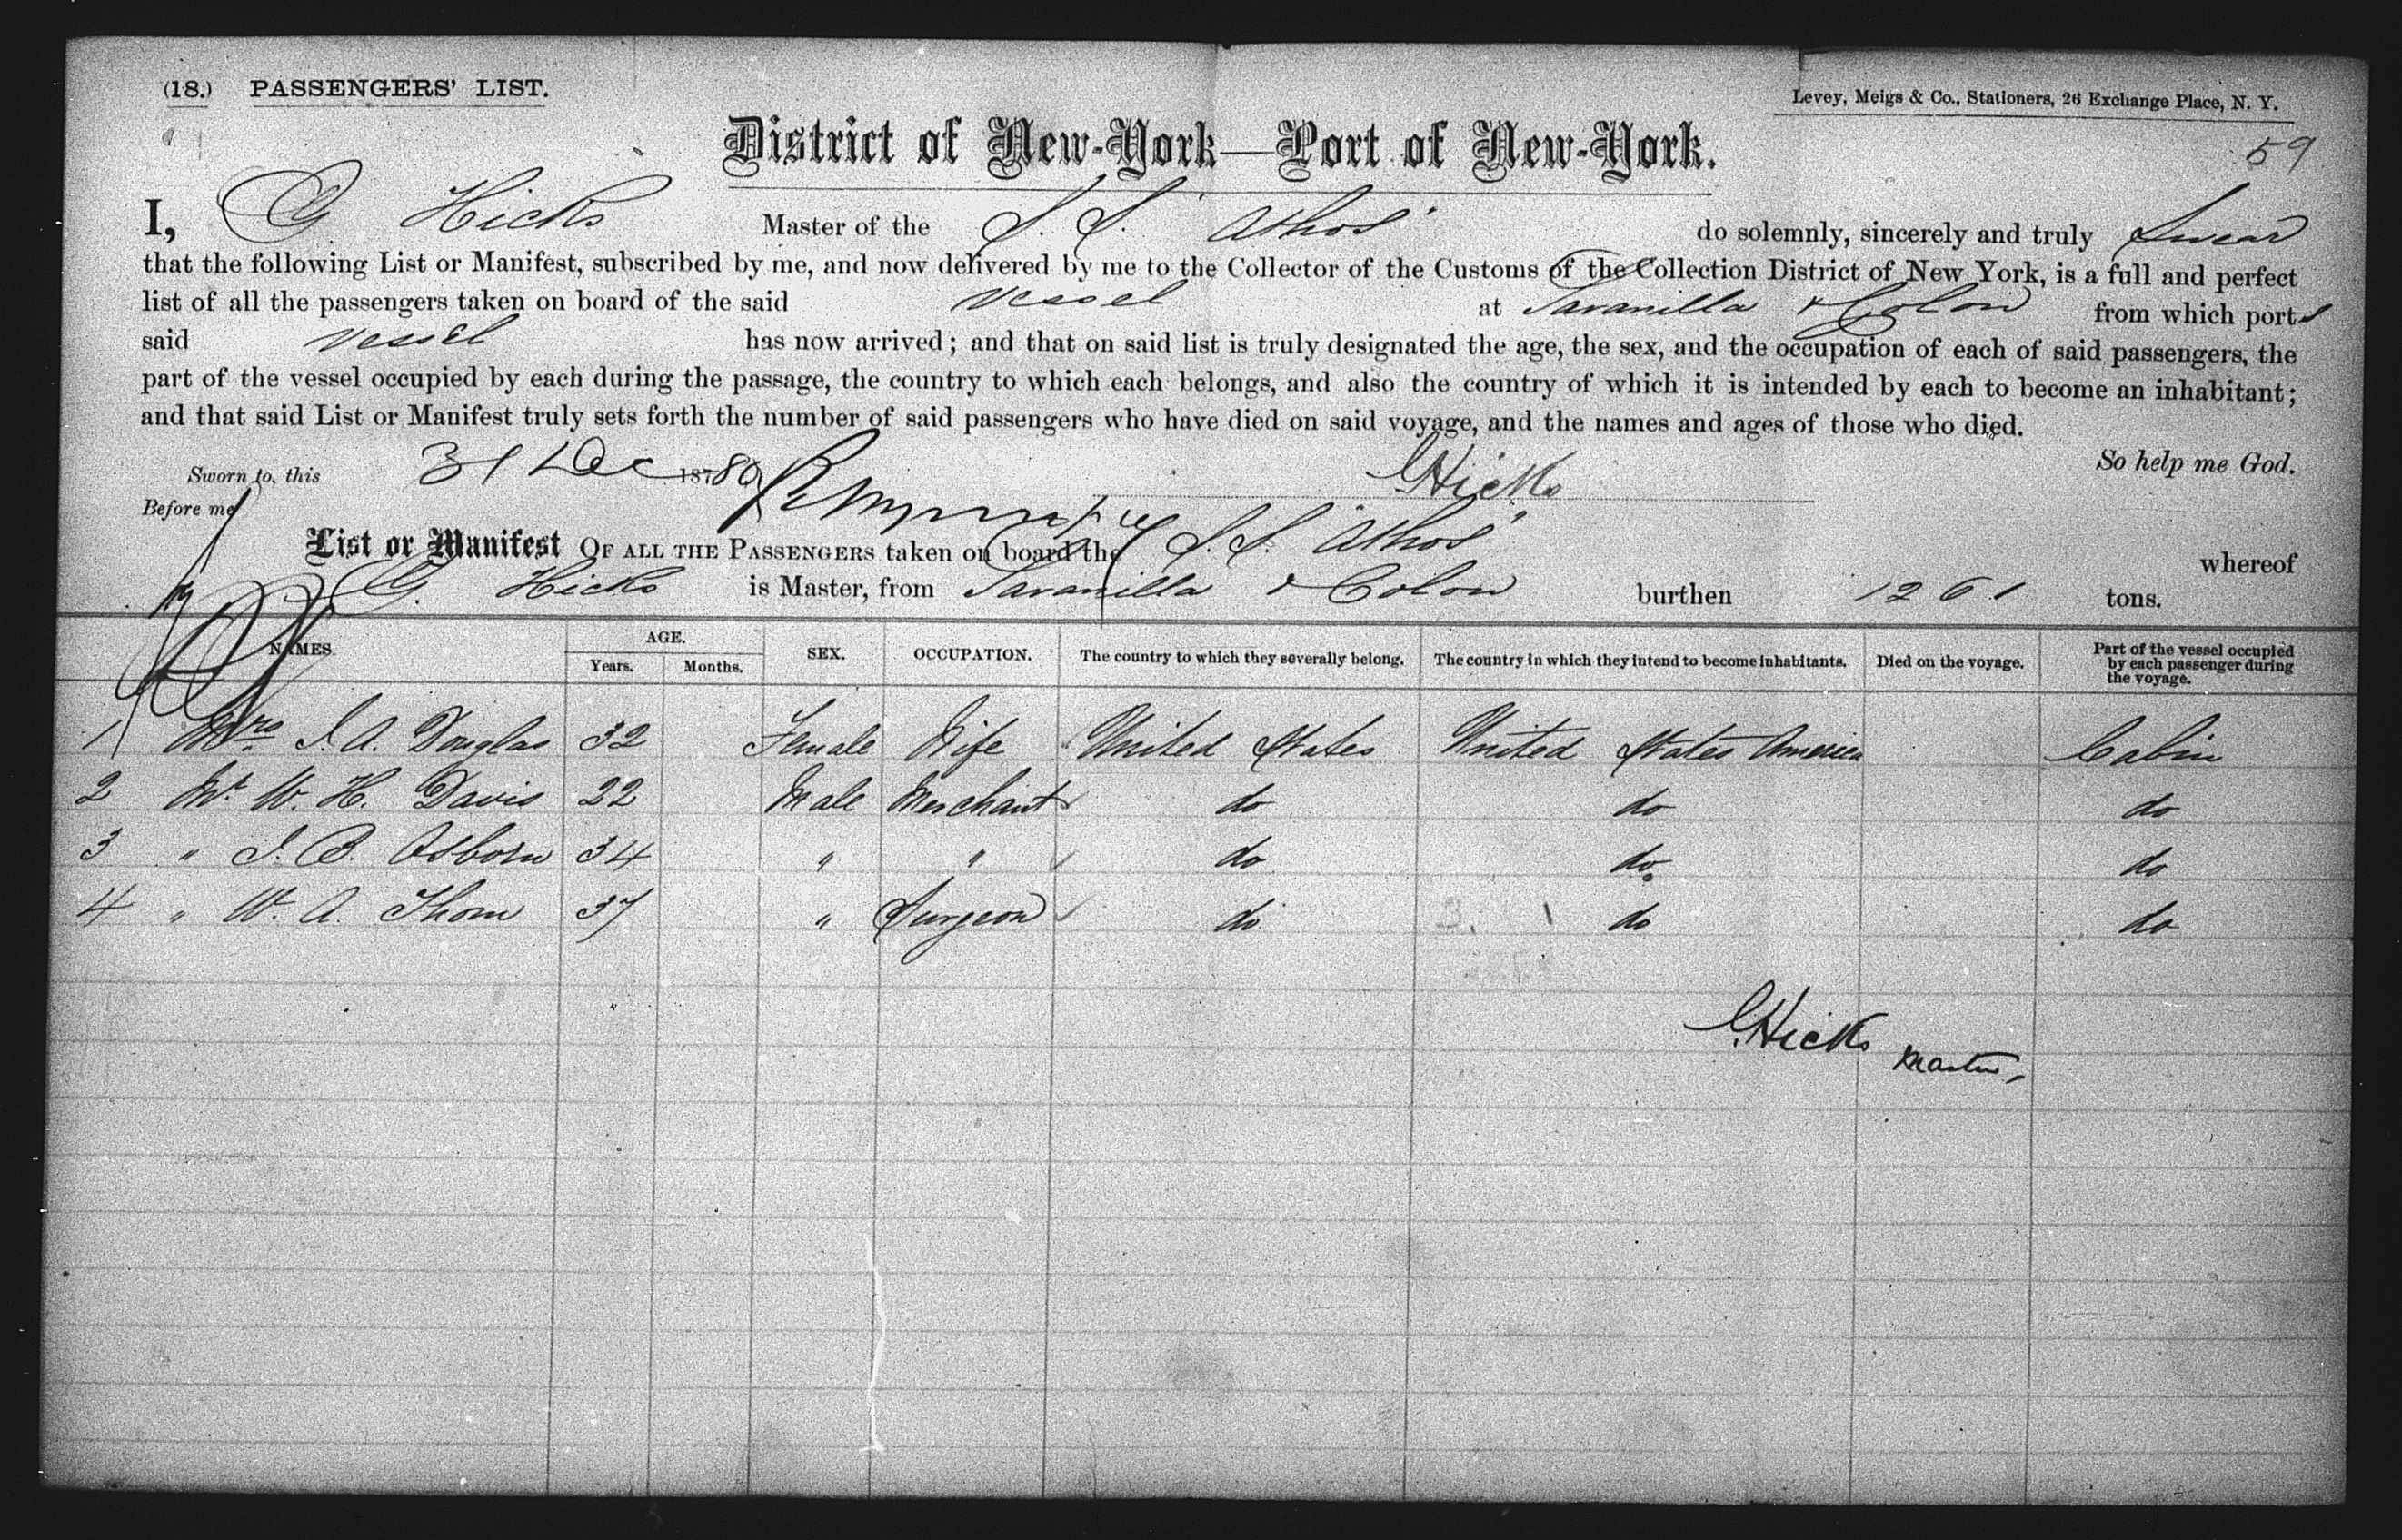 (18.) PASSENGERS' LIST.
Levey, Meigs & Co., Stationers, 26 Exchange Place, N. Y.
District of New-York—Port of New-York.
59
I, G Hicks Master of the S. S. "Athos" do solemnly, sincerely and truly Swear
that the following List or Manifest, subscribed by me, and now delivered by me to the Collector of the Customs of the Collection District of New York, is a full and perfect
list of all the passengers taken on board of the said vessel at Savanilla & Colon from which ports
said vessel has now arrived; and that on said list is truly designated the age, the sex, and the occupation of each of said passengers, the
part of the vessel occupied by each during the passage, the country to which each belongs, and also the country of which it is intended by each to become an inhabitant;
and that said List or Manifest truly sets forth the number of said passengers who have died on said voyage, and the names and ages of those who died.
So help me God.
Sworn to, this 31 Dec 18780 G Hicks
Before me
List or Manifest OF ALL THE PASSENGERS taken on board the S. S. "Athos" whereof
G. Hicks is Master, from Savanilla & Colon burthen 1261 tons.
NAMES. AGE. Years. Months. SEX. OCCUPATION. The country to which they severally belong. The country in which they intend to become inhabitants. Died on the voyage. Part of the vessel occupied by each passenger during the voyage.
1 Mrs J. A. Douglas 32 Female Wife United States United States America Cabin
2 Mr W. H. Davis 22 Male Merchant do do do
3 " J. B. Osborn 34 " " do do do
4 " W. A. Thom 37 " Surgeon do do do
G Hicks Master